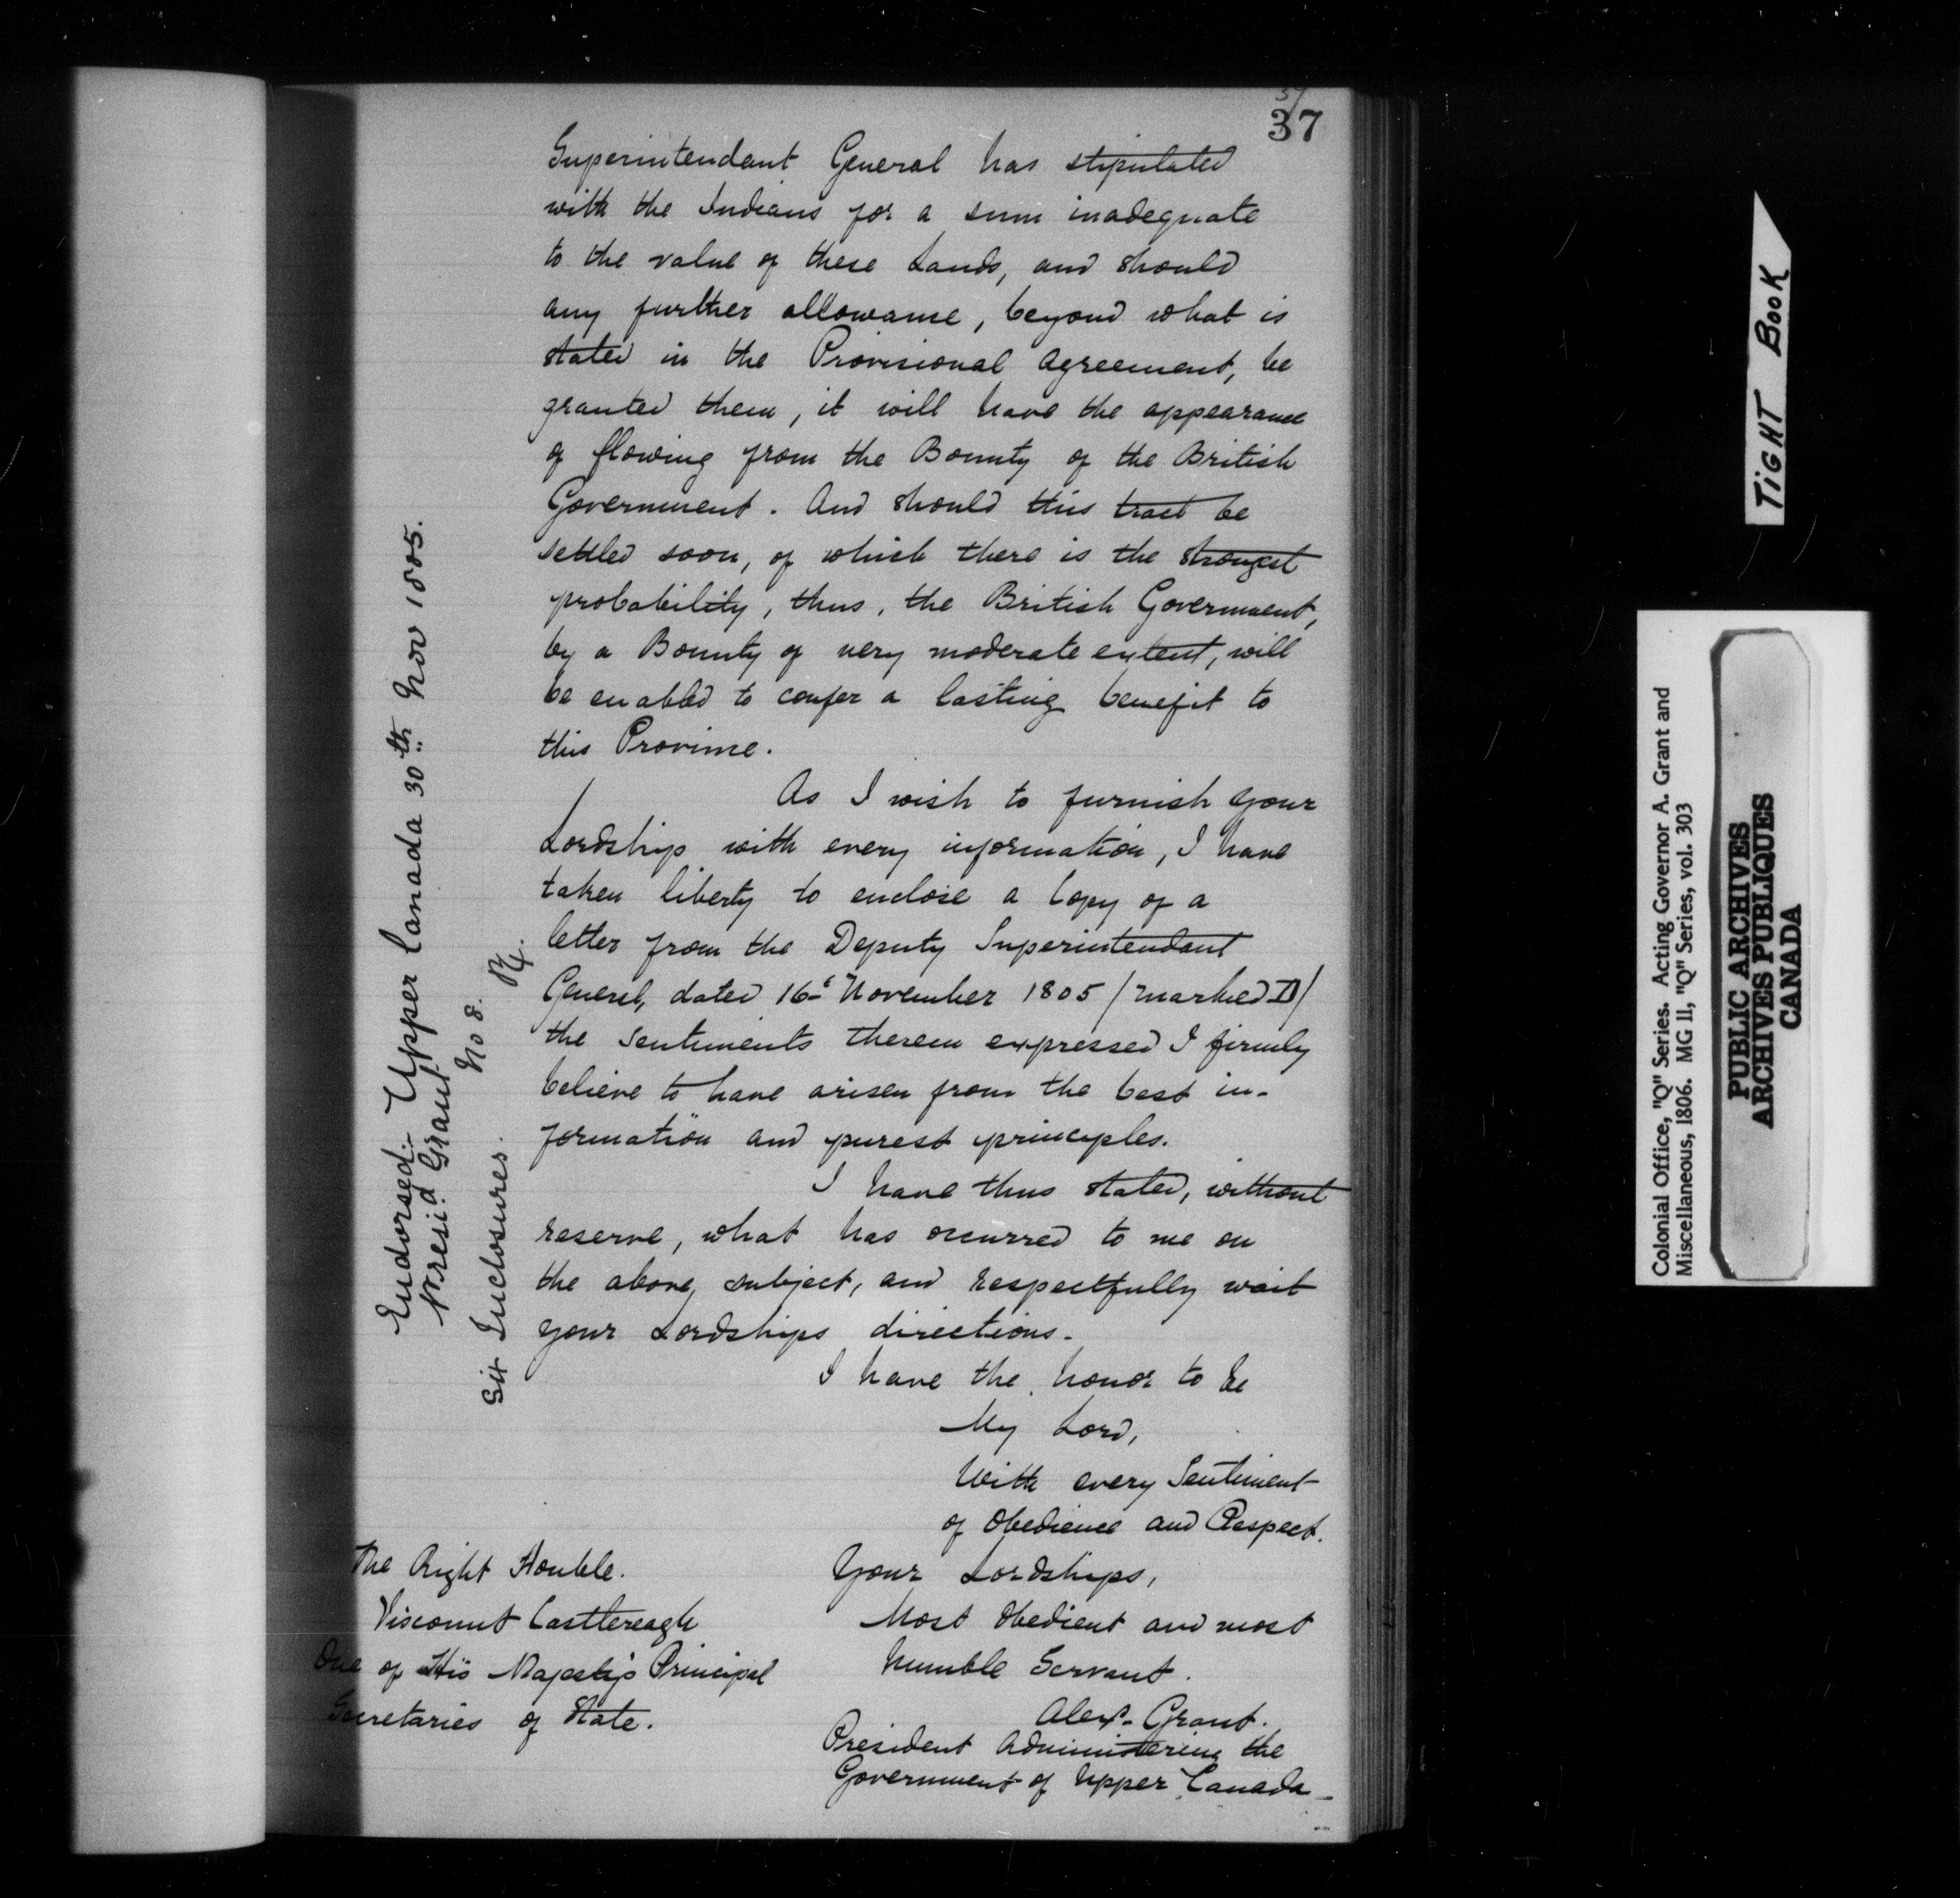 37
37
Superintendant General has stipulated
with the Indians for a sum inadequate
to the value of these Lands, and should
any further allowance, beyond what is
stated in the Provisional Agreement, be
granted them, it will have the appearance
of flowing from the Bounty of the British
Government. And should this tract be
settled soon, of which there is the strongest
probability, thus, the British Government,
by a Bounty of very moderate extent, will
be enabled to confer a lasting benefit to
this Province.
As I wish to furnish your
Lordship with every information, I have
taken liberty to enclose a Copy of a
letter from the Deputy Superintendant
General, dated 16th November 1805 / marked D /
the Sentiments therein expressed I firmly
believe to have arisen from the best in-
formation and purest principles.
I have thus stated, without
reserve, what has occurred to me on
the above, subject, and respectfully wait
your Lordships directions.
I have the honor to be
My Lord,
With every Sentiment
of Obedience and Respect.
Your Lordships,
Most Obedient and most
humble Servant.
Alexr. Grant.
President Administering the
Government of Upper Canada
The Right Honble.
Viscount Castlereagh
One of His Majesty's Principal
Secretaries of State.
Endorsed:- Upper Canada 30th Nov 1805.
Presid. Grant
No 8.
Six Inclosures.
TIGHT BOOK
Colonial Office, "Q" Series. Acting Governor A. Grant and
Miscellaneous, 1806. MG 11, "Q" Series, vol. 303
PUBLIC ARCHIVES
ARCHIVES PUBLIQUES
CANADA